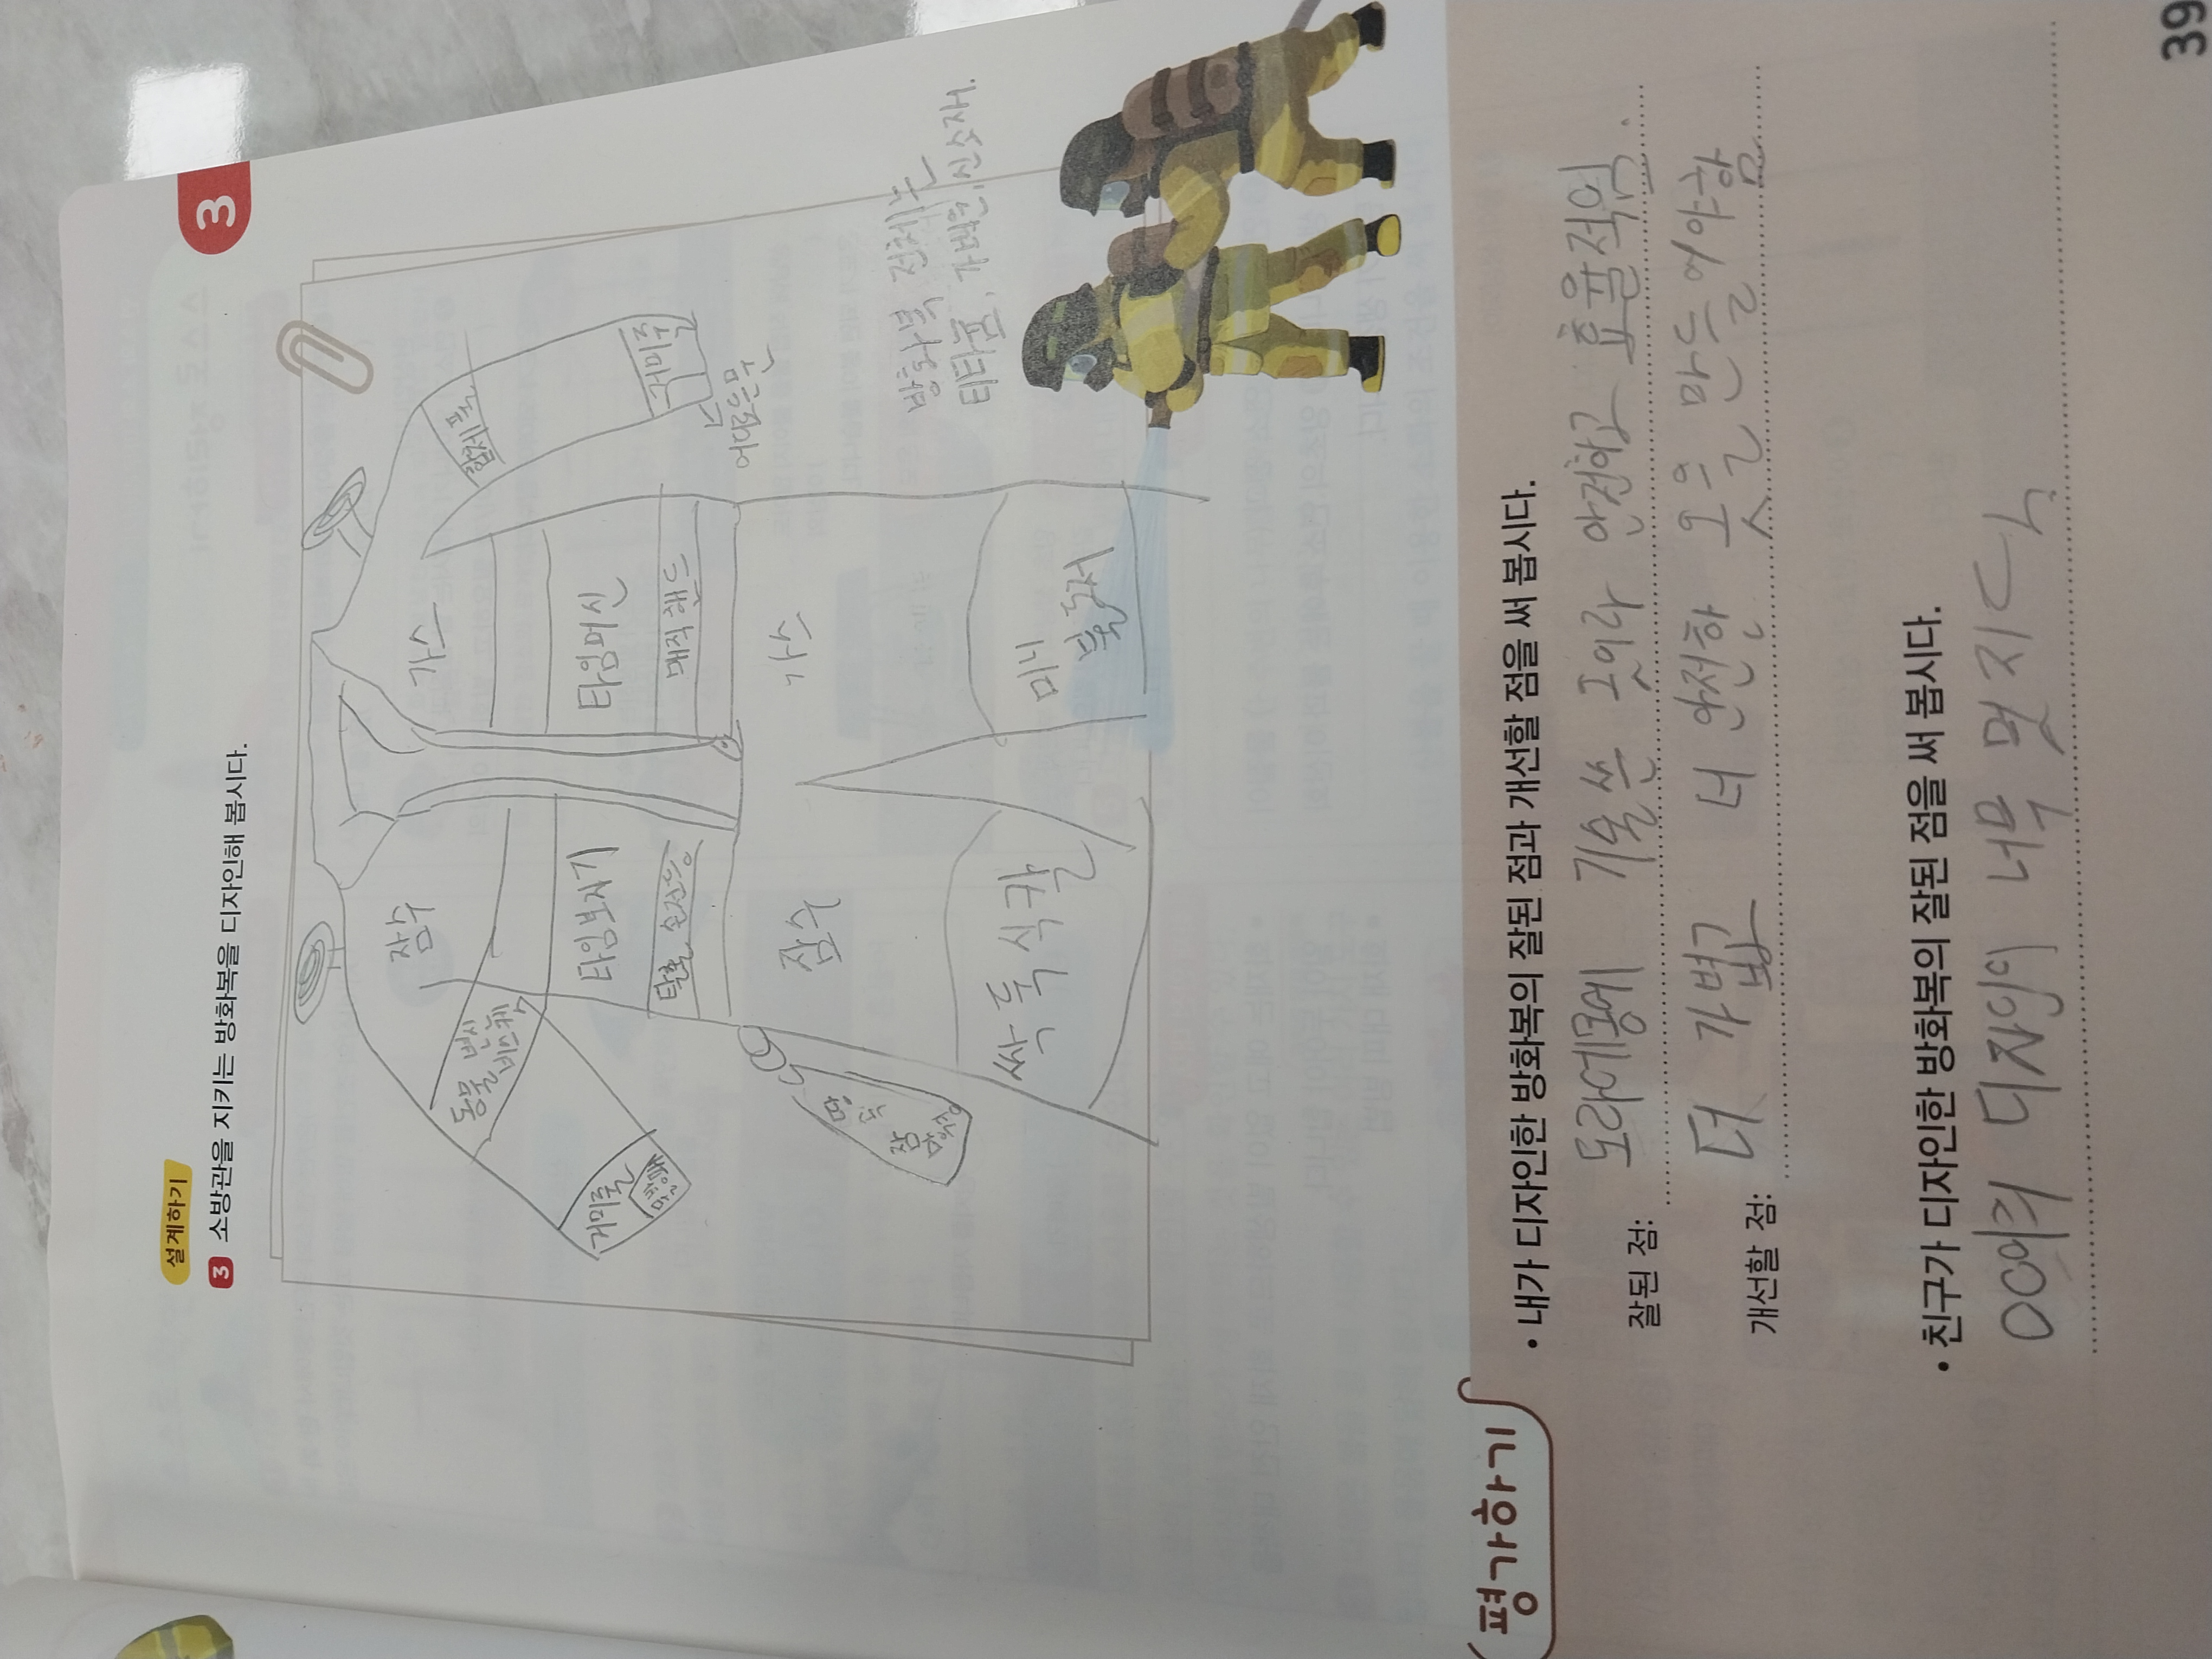 3
설계하기
3 소방관을 지키는 방화복을 디자인해 봅시다.
잠수
가스
합체 풀
동물 변신
비스켓
타임보자기
타임머신
탁훈 손전등
매직핸드
거미줄
거미줄
어디로든문
망
토
잠수
가스
싹둑 식칼
미니
방화복 전체는
티타늄, 가변현, 신소재.
평가하기
• 내가 디자인한 방화복의 잘된 점과 개선할 점을 써 봅시다.
잘된 점: 도라에몽에 기술 쓴 것이라 안전하고 효율적임.
개선할 점: 더 가볍고 더 안전한 옷을 만들어야함
• 친구가 디자인한 방화복의 잘된 점을 써 봅시다.
00이의 디자인이 너무 멋지다.
39